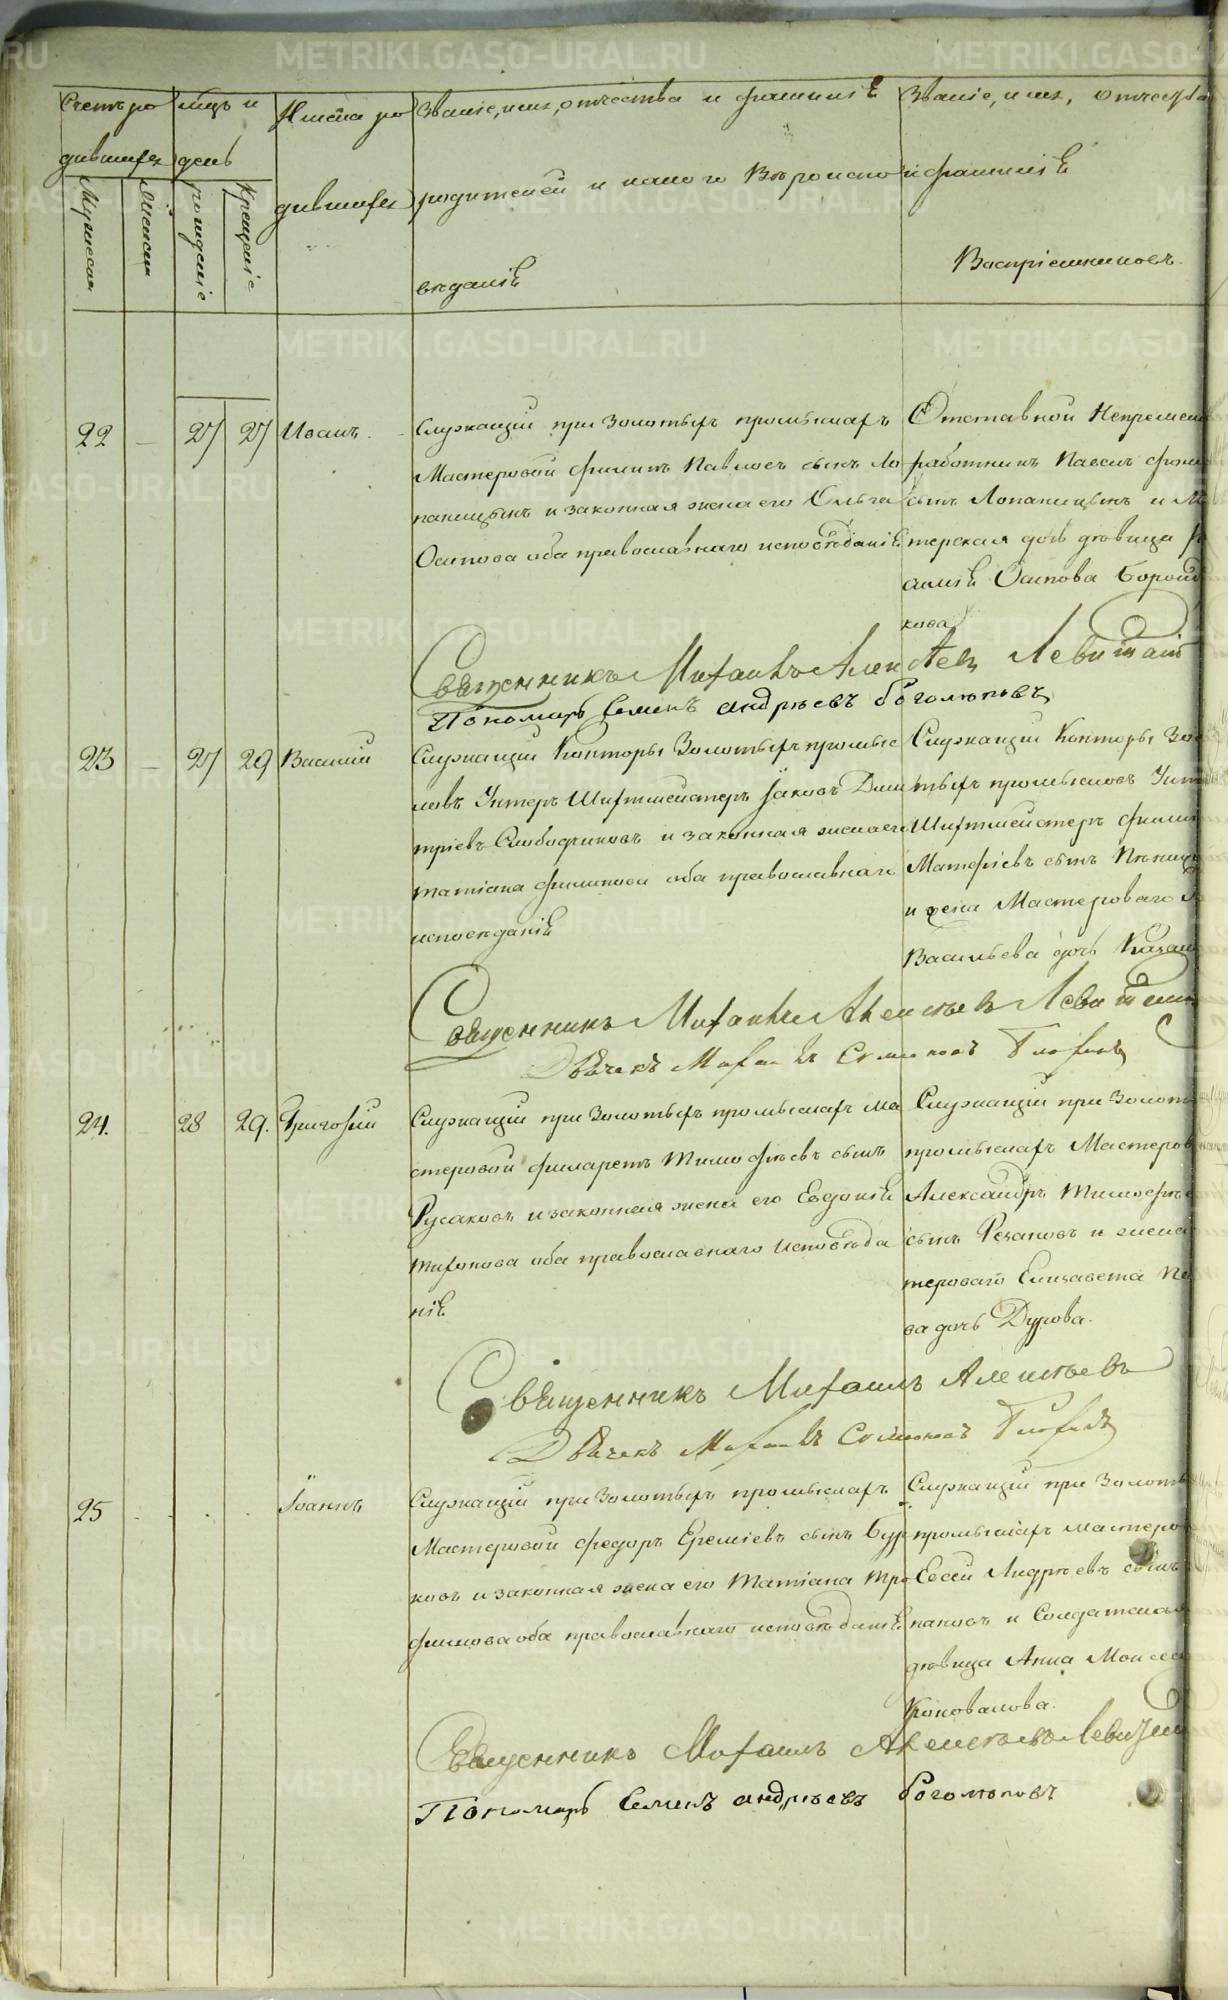 Счетъ ро
дившихся
Мужеска
Женска
мцъ и
день
рожденіе
Крещеніе
Имена ро
дившихся
Званіе, имя, отчества и фамиліѣ
родителей и какого Вѣроиспо
вѣданіѣ
Званіе, имя, отчества
и фамиліѣ
Воспріемниковъ.
22 — 27 27 Иванъ.
Служащій при Золотыхъ промыслахъ
Мастеровой Филипъ Павловъ сынъ Ло
паницынъ и законная жена его Ольга
Осипова оба православнаго исповѣданіѣ
Отставной Непремен
работникъ Павелъ
сынъ Лопаницынъ и
терская дочь дѣвица
Осипова
кова
Священникъ Михаилъ Алексѣевъ Левитскій
Пономарь Семенъ Андрѣевъ Боголюповъ
23 — 27 29 Василій
Служащій Конторы Золотыхъ промыс
ловъ Унтеръ Шихтмейстеръ Іаковъ Дми
тріевъ Слободчиковъ и законная жена его
Татіана Филипова оба православнаго
исповѣданіѣ
Служащій Конторы Зо
лотыхъ промысловъ Унт
Шихтмейстеръ Филип
Матфіевъ сынъ
и жена Мастероваго
Васильева дочь
Священникъ Михаилъ Алексѣевъ Левитскій
Дьячекъ Михаилъ Симоновъ
24. 28 29. Григорій
Служащій при Золотыхъ промыслахъ Ма
стеровой Филаретъ Тимофѣевъ сынъ
Русаковъ и законная жена его Евдокіѣ
Тихонова оба православнаго исповѣда
ніѣ
Служащій при Золот
промыслахъ Мастеров
Александръ Тимофѣе
сынъ Резановъ и жена
тероваго Елизавета
ва дочь Дурова.
Священникъ Михаилъ Алексѣевъ
Дьячекъ Михаилъ Симоновъ
25 Іоаннъ
Служащій при Золотыхъ промыслахъ
Мастеровой Федоръ Еремѣевъ сынъ Бур
ковъ и законная жена его Татіана Тро
фимова оба православнаго исповѣданіѣ
Служащій при Золоты
промыслахъ мастеро
Евсей Андрѣевъ сынъ
пановъ и Солдатская
дѣвица Анна Моисее
Коновалова.
Священникъ Михаилъ Алексѣевъ Левитскій
Пономарь Семенъ Андрѣевъ Боголюповъ